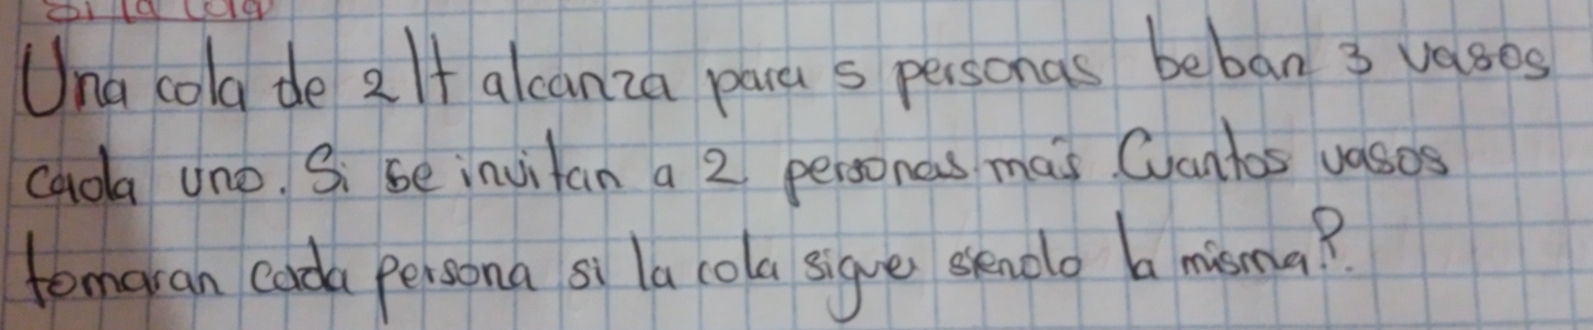 Si la cola
Una cola de 2 lt alcanza para 5 personas beban 3 vasos
cada uno. Si se invitan a 2 personas más. Cuantos vasos
tomaran cada persona si la cola sigue siendo la misma?.